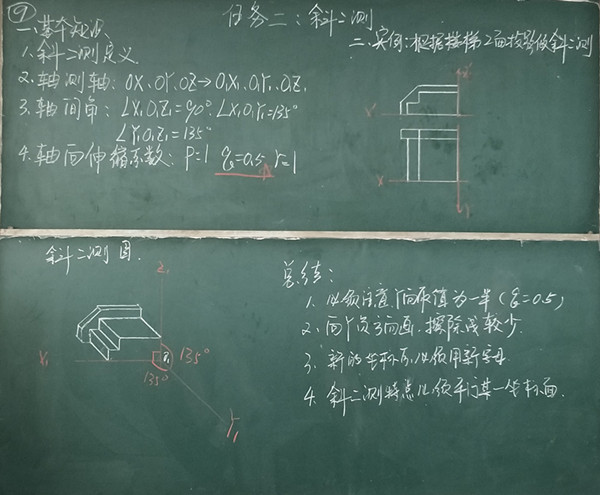 ⑨
任务二：斜二测
一、基本知识
1. 斜二测定义
2. 轴测轴：OX、OY、OZ→O₁X₁、O₁Y₁、O₁Z₁
3. 轴间角：∠X₁O₁Z₁=90° ∠X₁O₁Y₁=135°
∠Y₁O₁Z₁=135°
4. 轴向伸缩系数：P=1 q=0.5 r=1
二、实例：根据楼梯2面投影做斜二测
Z'
X'
X
Y
斜二测图.
Z₁
X₁
O₁
135°
135°
Y₁
总结：
1. 必须注意Y向取值为一半（q=0.5）
2. 向Y负方向画，擦除线较少.
3. 新的坐标系，必须用新字母
4. 斜二测特点必须平行某一坐标面.